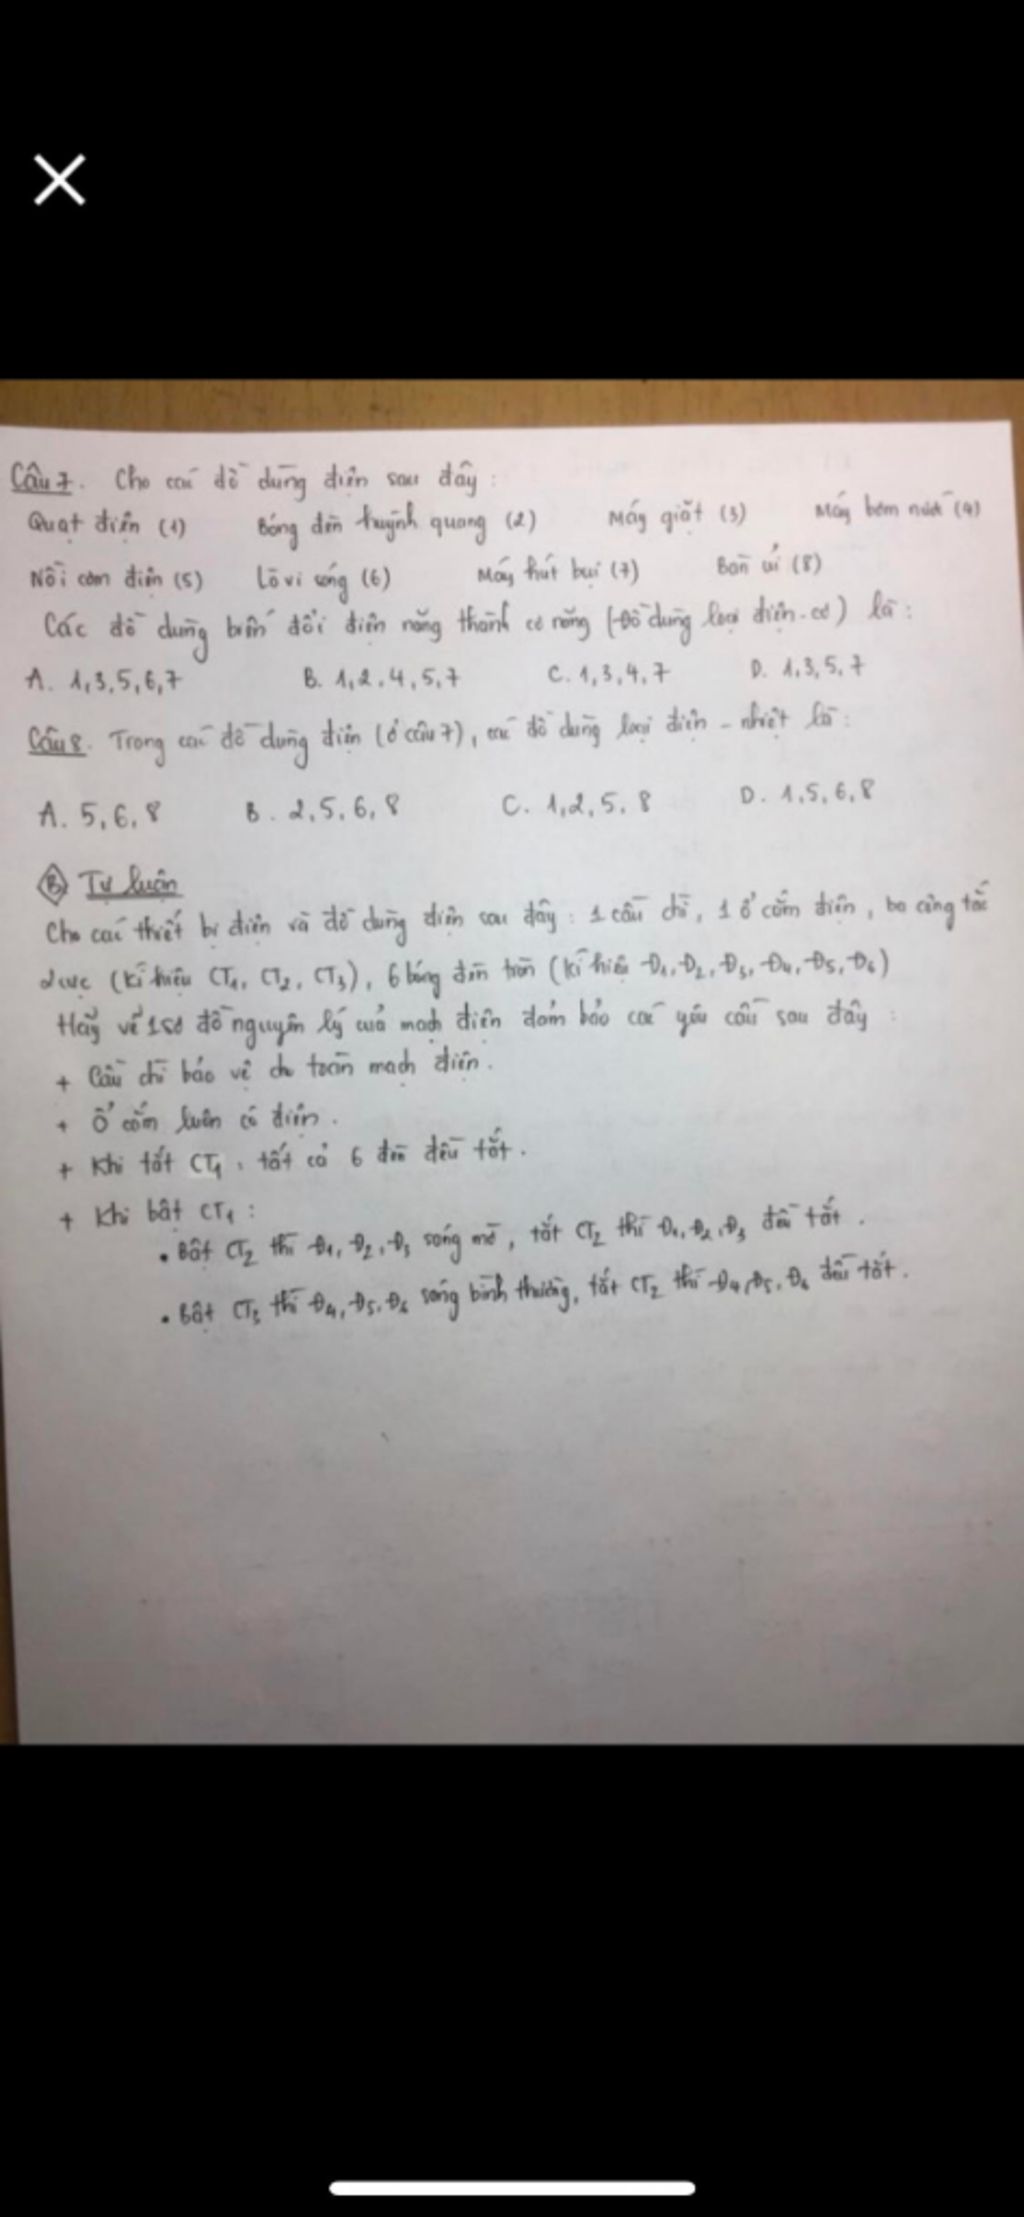 Câu 7. Cho các đồ dùng điện sau đây:
Quạt điện (1) Bóng đèn huỳnh quang (2) Máy giặt (3) Máy bơm nước (4)
Nồi cơm điện (5) Lò vi sóng (6) Máy hút bụi (7) Bàn ủi (8)
Các đồ dùng biến đổi điện năng thành cơ năng (Đồ dùng loại điện-cơ) là:
A. 1,3,5,6,7 B. 1,2,4,5,7 C. 1,3,4,7 D. 1,3,5,7
Câu 8. Trong các đồ dùng điện (ở câu 7), các đồ dùng loại điện - nhiệt là:
A. 5,6,8 B. 2,5,6,8 C. 1,2,5,8 D. 1,5,6,8
B Tự luận
Cho các thiết bị điện và đồ dùng điện sau đây: 1 cầu chì, 1 ổ cắm điện, ba công tắc
2 cực (kí hiệu CT1, CT2, CT3), 6 bóng đèn tròn (kí hiệu Đ1, Đ2, Đ3, Đ4, Đ5, Đ6)
Hãy vẽ 1 sơ đồ nguyên lý của mạch điện đảm bảo các yêu cầu sau đây:
+ Cầu chì bảo vệ cho toàn mạch điện.
+ Ổ cắm luôn có điện.
+ Khi tắt CT1, tất cả 6 đèn đều tắt.
+ Khi bật CT1:
• Bật CT2 thì Đ1, Đ2, Đ3 sáng mờ, tắt CT2 thì Đ1, Đ2, Đ3 đều tắt.
• Bật CT3 thì Đ4, Đ5, Đ6 sáng bình thường, tắt CT2 thì Đ4, Đ5, Đ6 đều tắt.